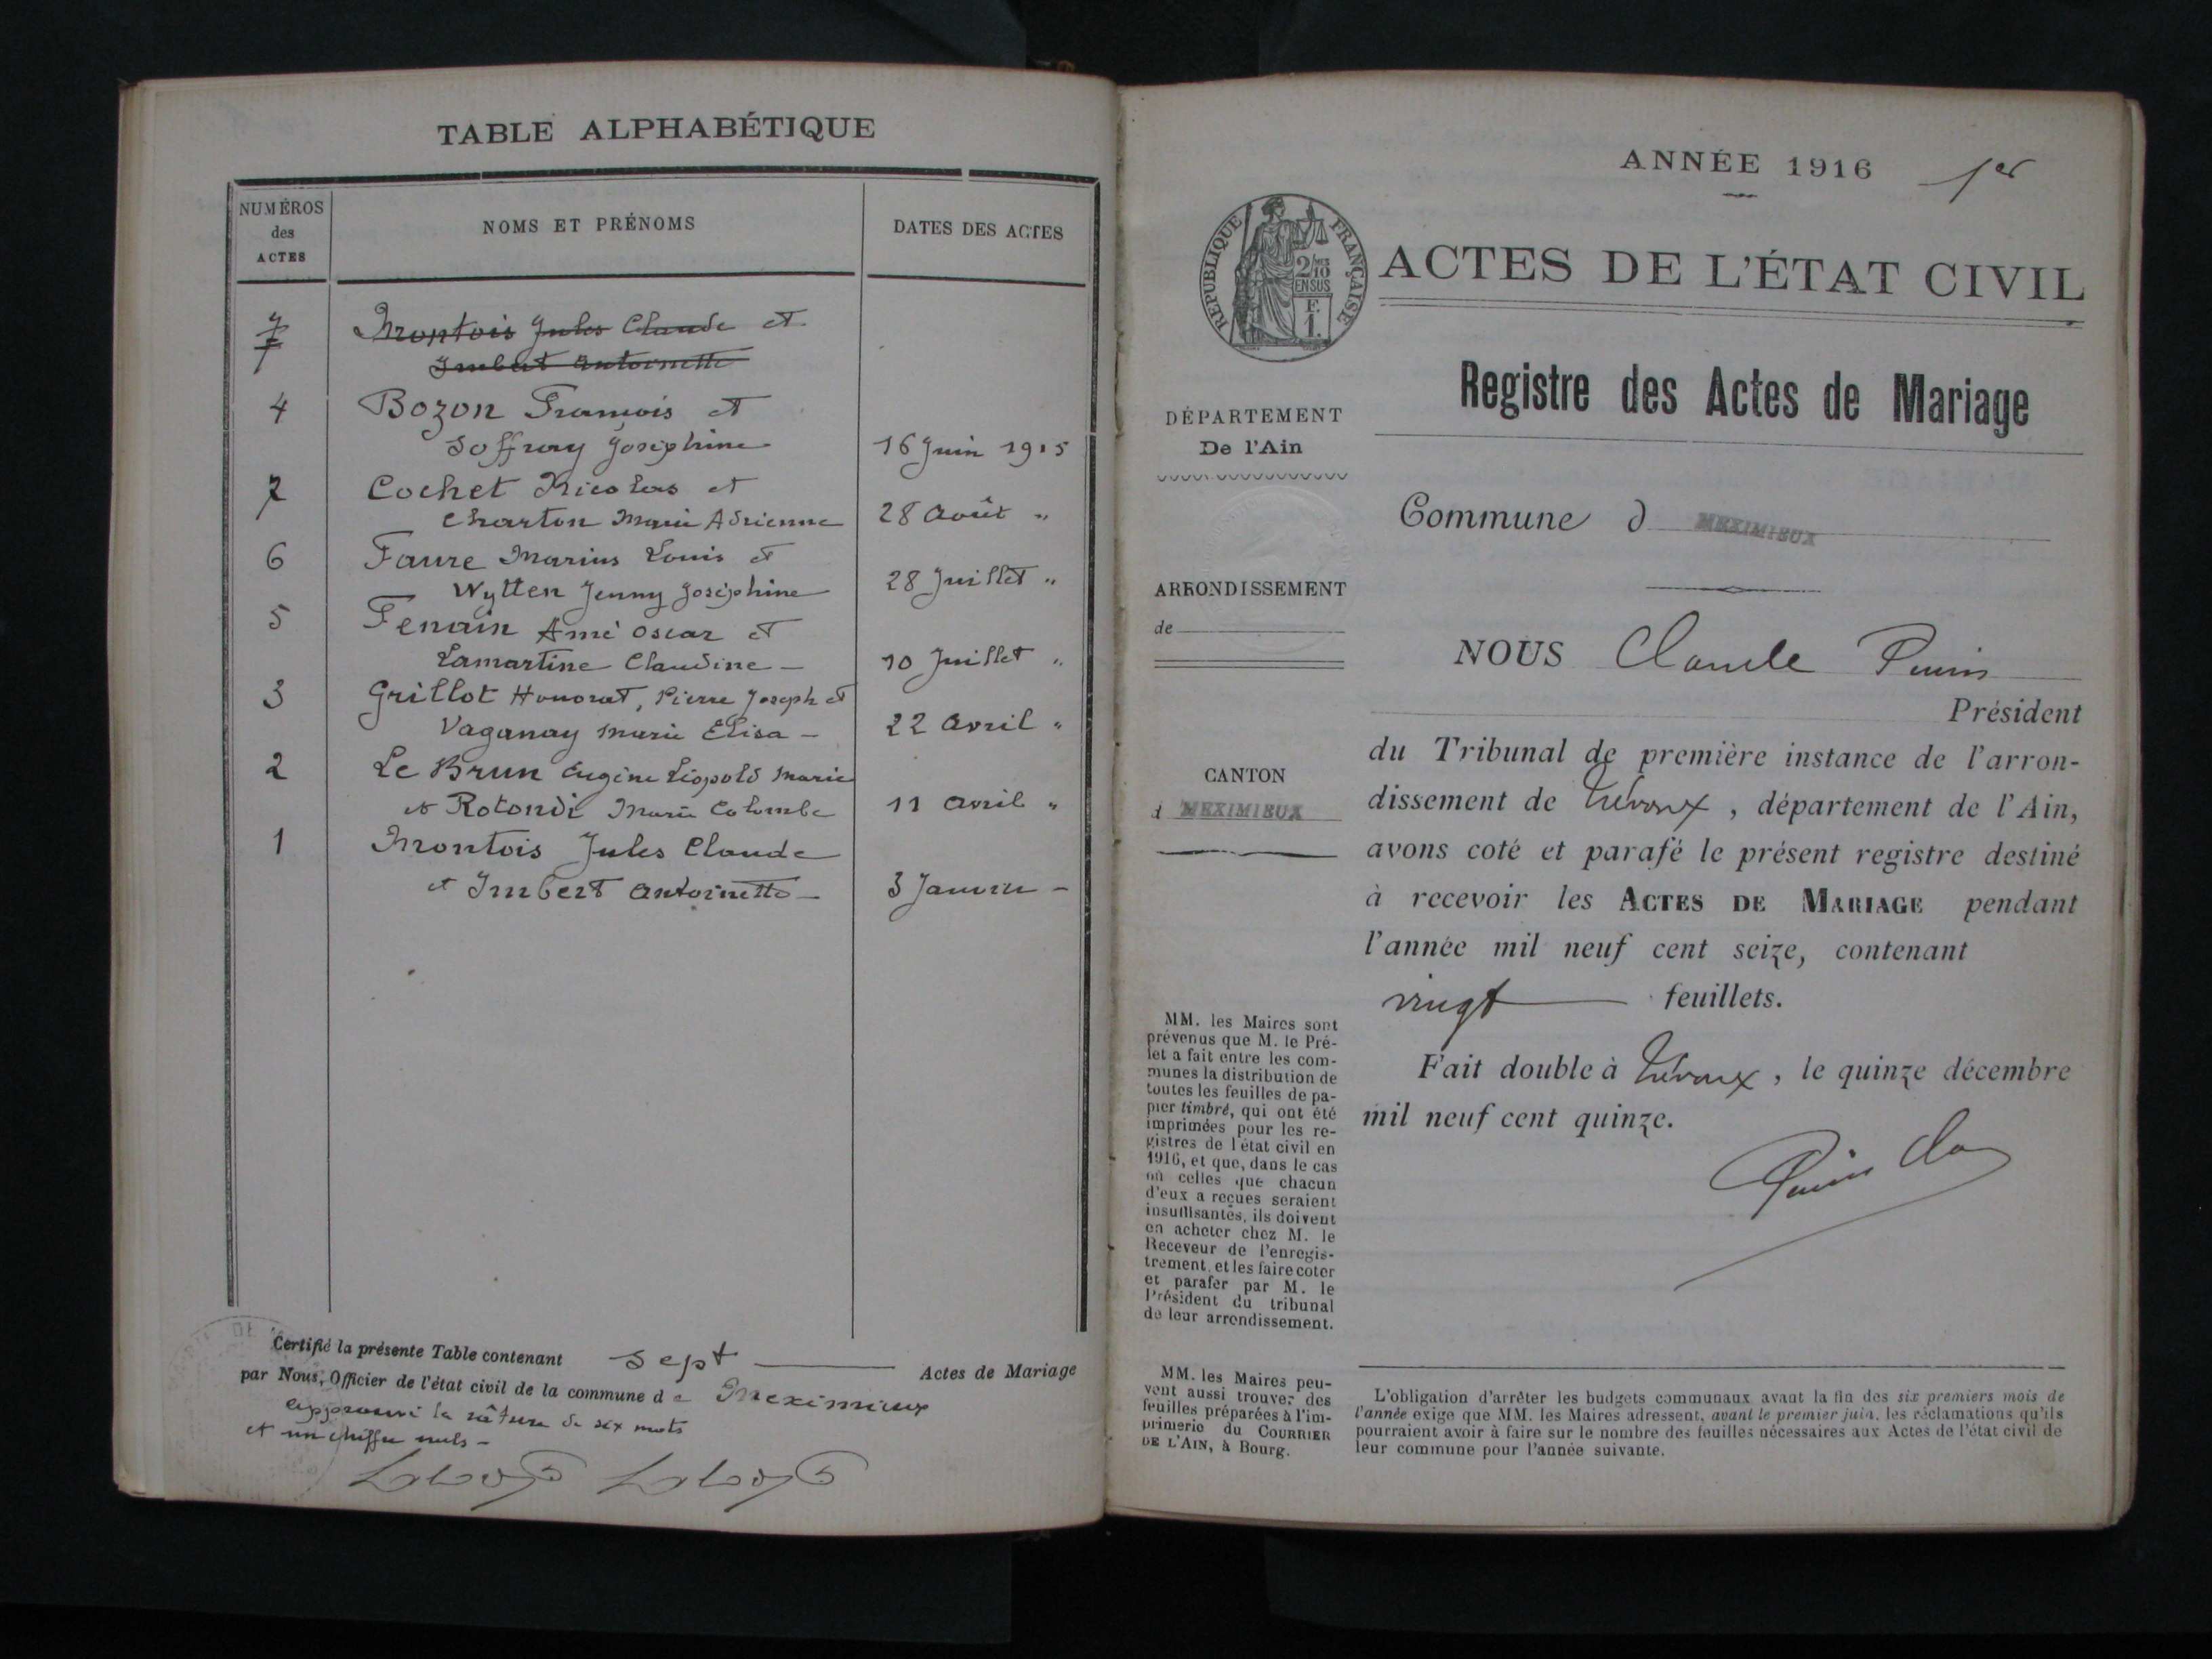 TABLE ALPHABÉTIQUE
NUMÉROS des ACTES
NOMS ET PRÉNOMS
DATES DES ACTES
Montois Jules Claude et
Imbert Antoinette
4 Bozon François et
Soffray Joséphine 16 Juin 1915
7 Cochet Nicolas et
Charton Marie Adrienne 28 Août "
6 Faure Marius Louis et
Wytten Jenny Joséphine 28 Juillet "
5 Fenain Amé Oscar et
Lamartine Claudine - 10 Juillet "
3 Grillot Honorat, Pierre Joseph et
Vaganay Marie Elisa - 22 Avril "
2 Le Brun Eugène Léopold Marie
et Rotondi Marie Colombe 11 Avril "
1 Montois Jules Claude
et Imbert Antoinette - 3 Janvier -
Certifié la présente Table contenant sept Actes de Mariage
par Nous, Officier de l'état civil de la commune de Meximieux
approuvé la rature de six mots
et un chiffre nuls -
ANNÉE 1916 1er
RÉPUBLIQUE FRANÇAISE
2/10
EN SUS
F.
1.
ACTES DE L'ÉTAT CIVIL
Registre des Actes de Mariage
DÉPARTEMENT
De l'Ain
Commune d MEXIMIEUX
ARRONDISSEMENT
de
CANTON
d MEXIMIEUX
NOUS Claude
Président
du Tribunal de première instance de l'arron-
dissement de Trévoux, département de l'Ain,
avons coté et parafé le présent registre destiné
à recevoir les ACTES DE MARIAGE pendant
l'année mil neuf cent seize, contenant
vingt feuillets.
Fait double à Trévoux, le quinze décembre
mil neuf cent quinze.
MM. les Maires sont
prévenus que M. le Pré-
fet a fait entre les com-
munes la distribution de
toutes les feuilles de pa-
pier timbré, qui ont été
imprimées pour les re-
gistres de l'état civil en
1916, et que, dans le cas
où celles que chacun
d'eux a reçues seraient
insuffisantes, ils doivent
en acheter chez M. le
Receveur de l'enregis-
trement, et les faire coter
et parafer par M. le
Président du tribunal
de leur arrondissement.
MM. les Maires peu-
vent aussi trouver des
feuilles préparées à l'im-
primerie du COURRIER
DE L'AIN, à Bourg.
L'obligation d'arrêter les budgets communaux avant la fin des six premiers mois de
l'année exige que MM. les Maires adressent, avant le premier juin, les réclamations qu'ils
pourraient avoir à faire sur le nombre des feuilles nécessaires aux Actes de l'état civil de
leur commune pour l'année suivante.